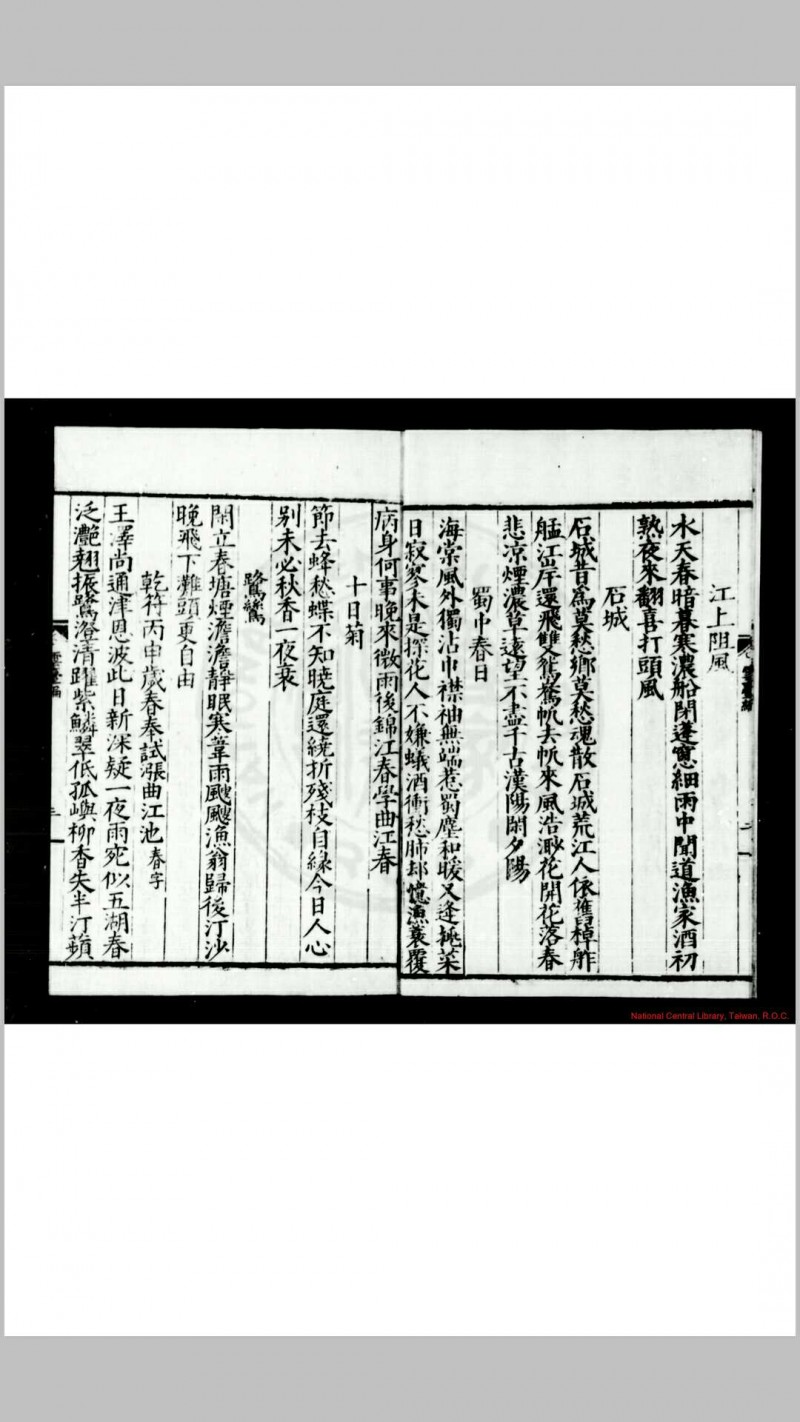 江上阻風
水天春暗暮寒濃船閉蓬窻細雨中聞道漁家酒初
熟夜來翻喜打頭風
石城
石城昔為莫愁鄉莫愁魂散石城荒江人依舊棹舴
艋江岸還飛雙鴛鴦帆去帆來風浩渺花開花落春
悲凉煙濃草遠望不盡千古漢陽閑夕陽
蜀中春日
海棠風外獨沾巾襟袖無端惹蜀塵和暖又逢挑菜
日寂寥未是探花人不嫌蟻酒衝愁肺却憶漁蓑覆
病身何事晚來微雨後錦江春學曲江春
十日菊
節去蜂愁蝶不知曉庭還繞折殘枝自緣今日人心
别未必秋香一夜衰
鷺鷥
閑立春塘煙澹澹靜眠寒葦雨颼颼漁翁歸後汀沙
晚飛下灘頭更自由
乾符丙申歲春奉試漲曲江池 春字
王澤尚通津恩波此日新深疑一夜雨宛似五湖春
泛灧翹振鷺澄清躍紫鱗翠低孤嶼柳香失半汀蘋
雲臺編
三
National Central Library, Taiwan, R.O.C.